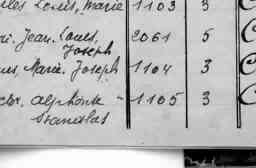 les Louis, Marie 1103 3
ri. Jean. Louis, 2061 5
Joseph
us, Marie. Joseph 1104 3
alphonse - 1105 3
Stanislas